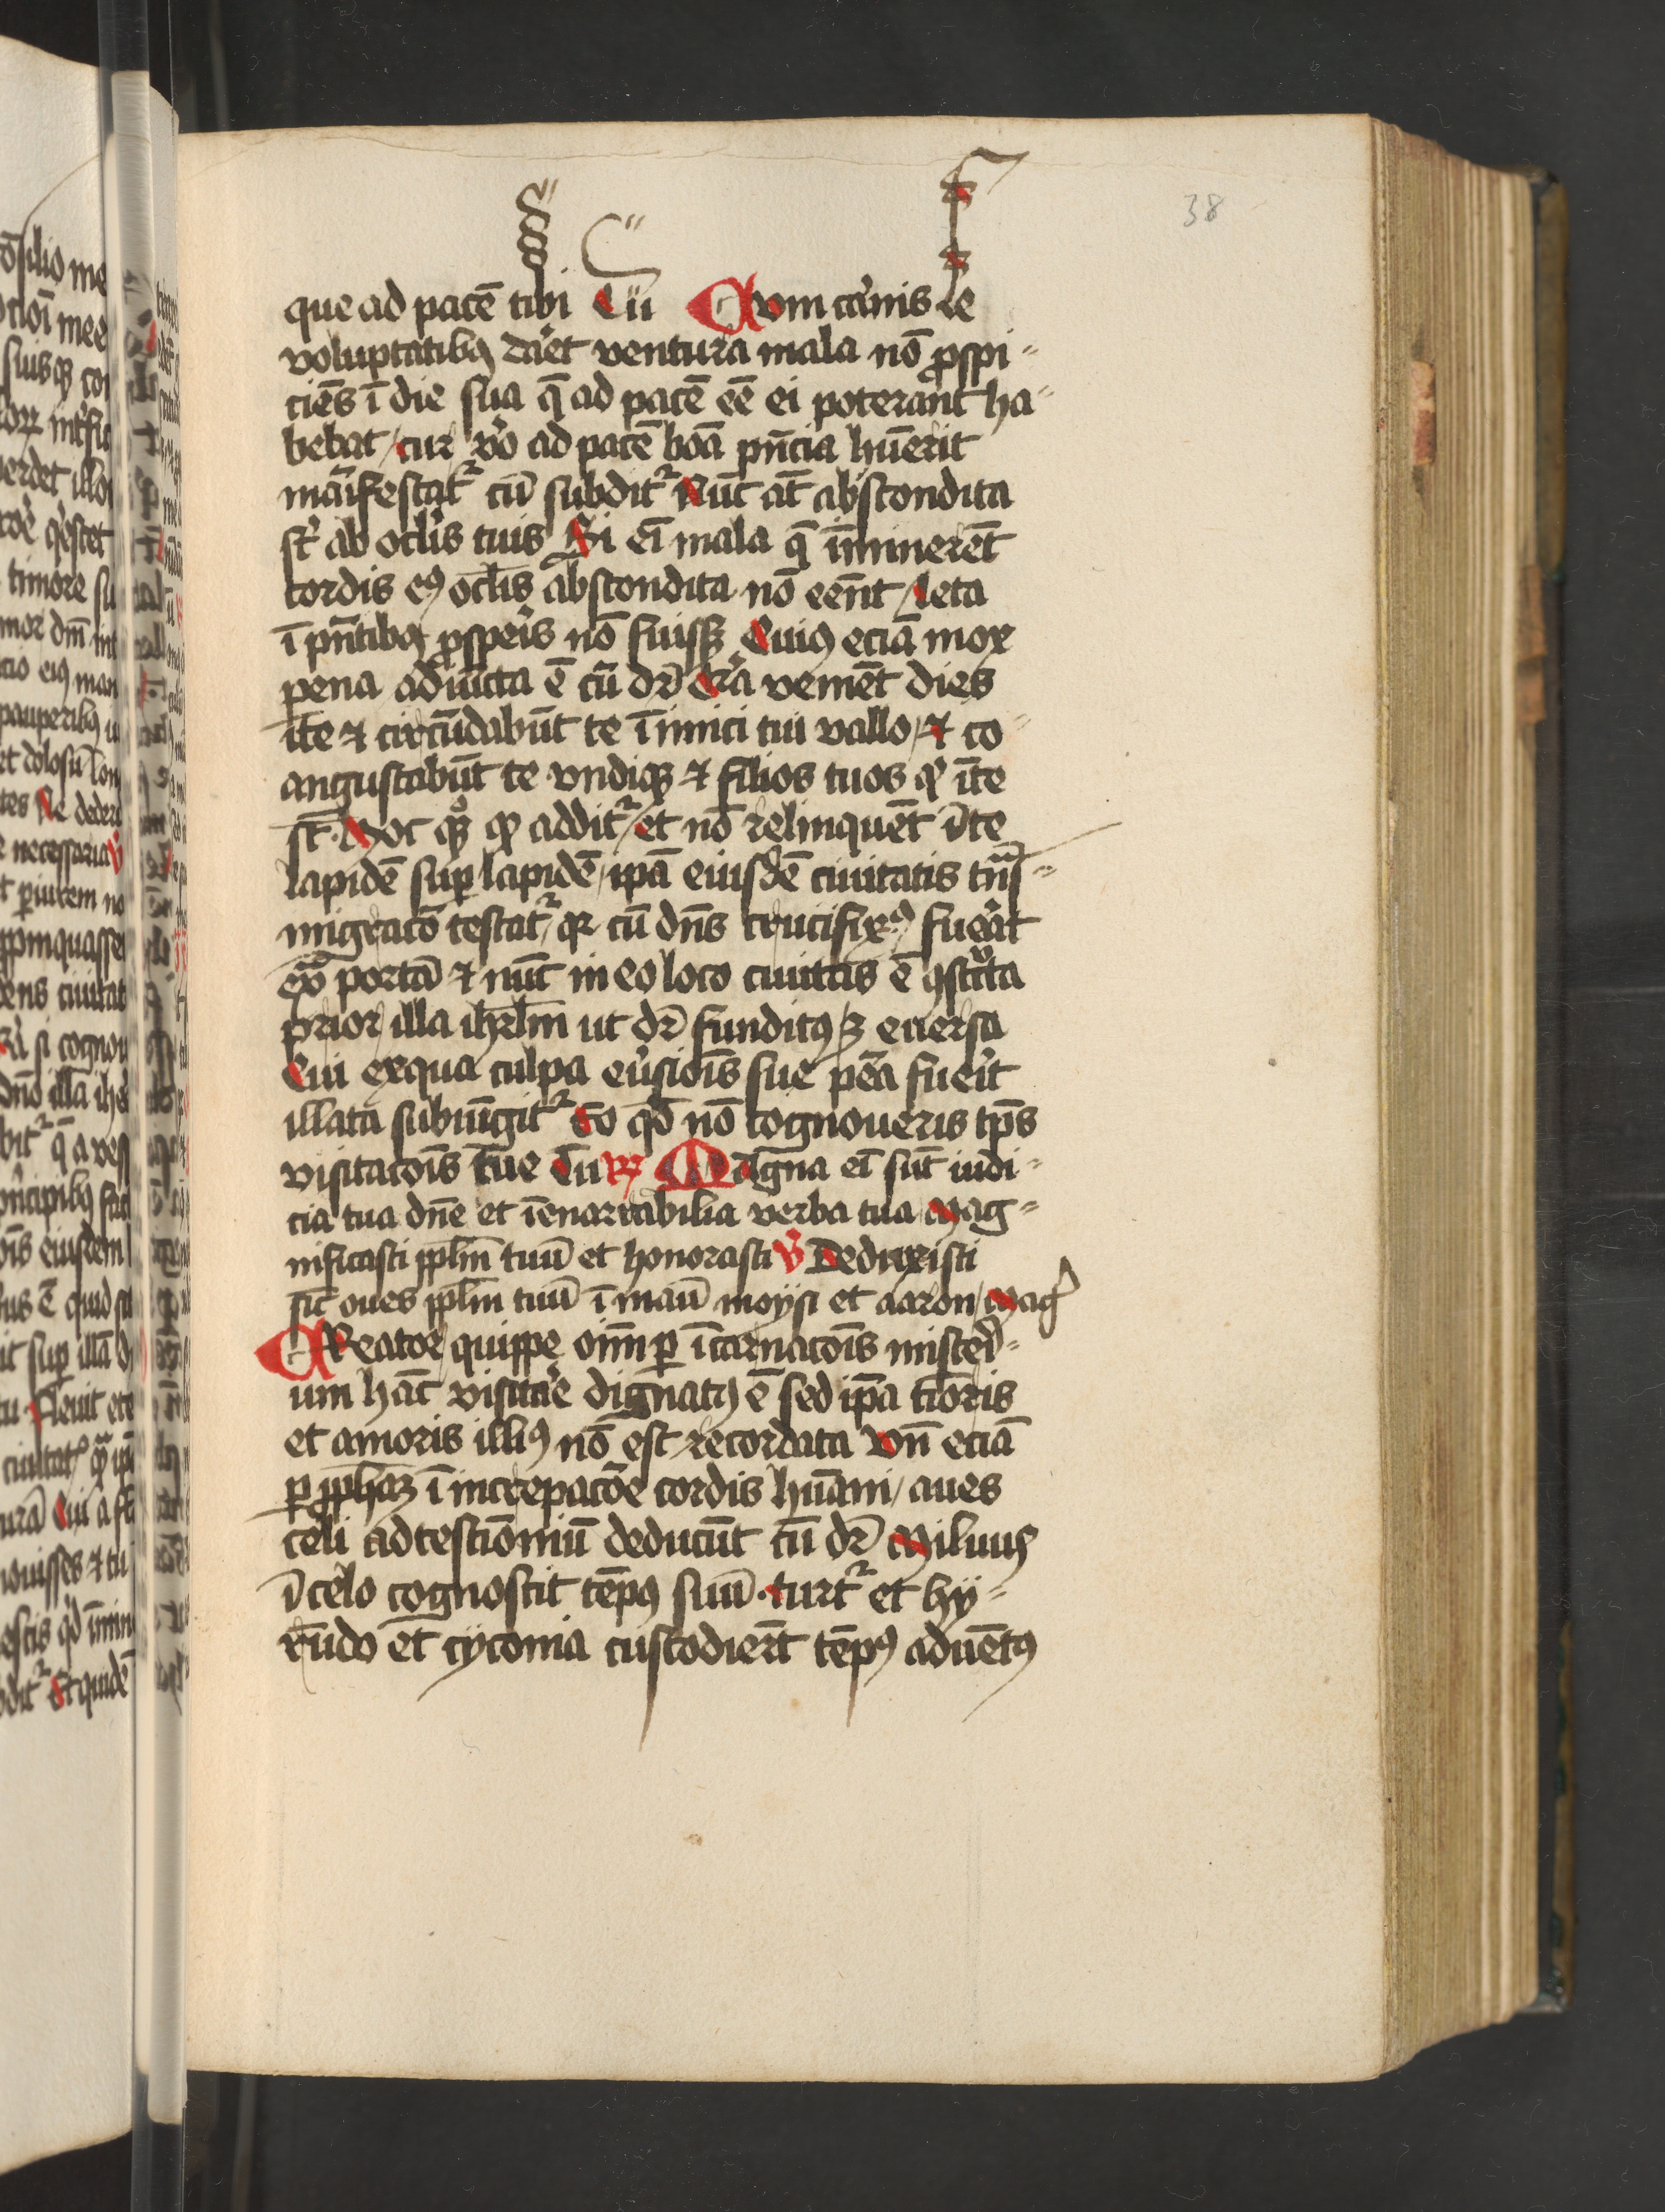 38
que ad pacē tibi Tu Cum carnis se
voluptatibꝰ daret ventura mala nō ꝓspi-
ciēs ī die sua q̄ ad pacē eē ei poterant ha-
bebat / cur v̓o ad pacē bōa pn̄cia hūerit
māifestat᷑ cū subdit᷑ Nūc āt abscondita
st̄ ab oclis tuis Si eī mala q̄ īminerēt
cordis eꝰ oclīs abscondita nō eēnt / leta
ī pn̄tibꝰ ꝓsperis nō fuissꝫ Cuiꝰ eciā mox
pena adiūcta ē cū dr̄ Qr̄a venient dies
ī te ⁊ circūdabūt te īimici tui vallo / ⁊ co-
angustabūt te vndiqꝫ ⁊ filios tuos qͥ ī te
st̄. Hoc qͦꝫ qͩ addit᷑ / et nō relinquēt ī te
lapidē suꝑ lapidē / ip̄a eiusdē ciuitatis tn̄s-
migracō testat᷑ / qꝛ cū dn̄s crucifixꝰ fuerat
ex̄ portā ⁊ nūc in eo loco ciuitas ē ꝯstructa
prior illa ihrl̄m ut dr̄ funditꝰ ꝫ euersa
Cui ex qua culpa eūsiois sue pēa fuerit
illata subiūgit᷑ Eo qd̄ nō cognoueris tp̄s
visitacōis tue Cu R̸ Magna eī sūt iudi-
cia tua dn̄e et īenarrabilia verba tua Mag-
nificasti ppl̄m tuū et honorasti V̓ Deduxisti
sic̄ oues ppl̄m tuū ī manū moysi et aaron / Mag̓
Creator quippe oīm ꝑ īcarnacōis misteri-
um hāc visitare dignatꝰ ē sed ip̄a tīoris
et amoris illiꝰ nō est recordata Vn̄ eciā
ꝑ ꝓph̄aꝫ ī increpacōe cordis hūani / aues
celi ad testiōniū deducūt cū dr̄ Miluuꝰ
ī celo cognoscit tēpꝰ suū. turt᷑ et hÿ-
rūdo et cÿconia custodierūt tēpꝰ aduētꝰ